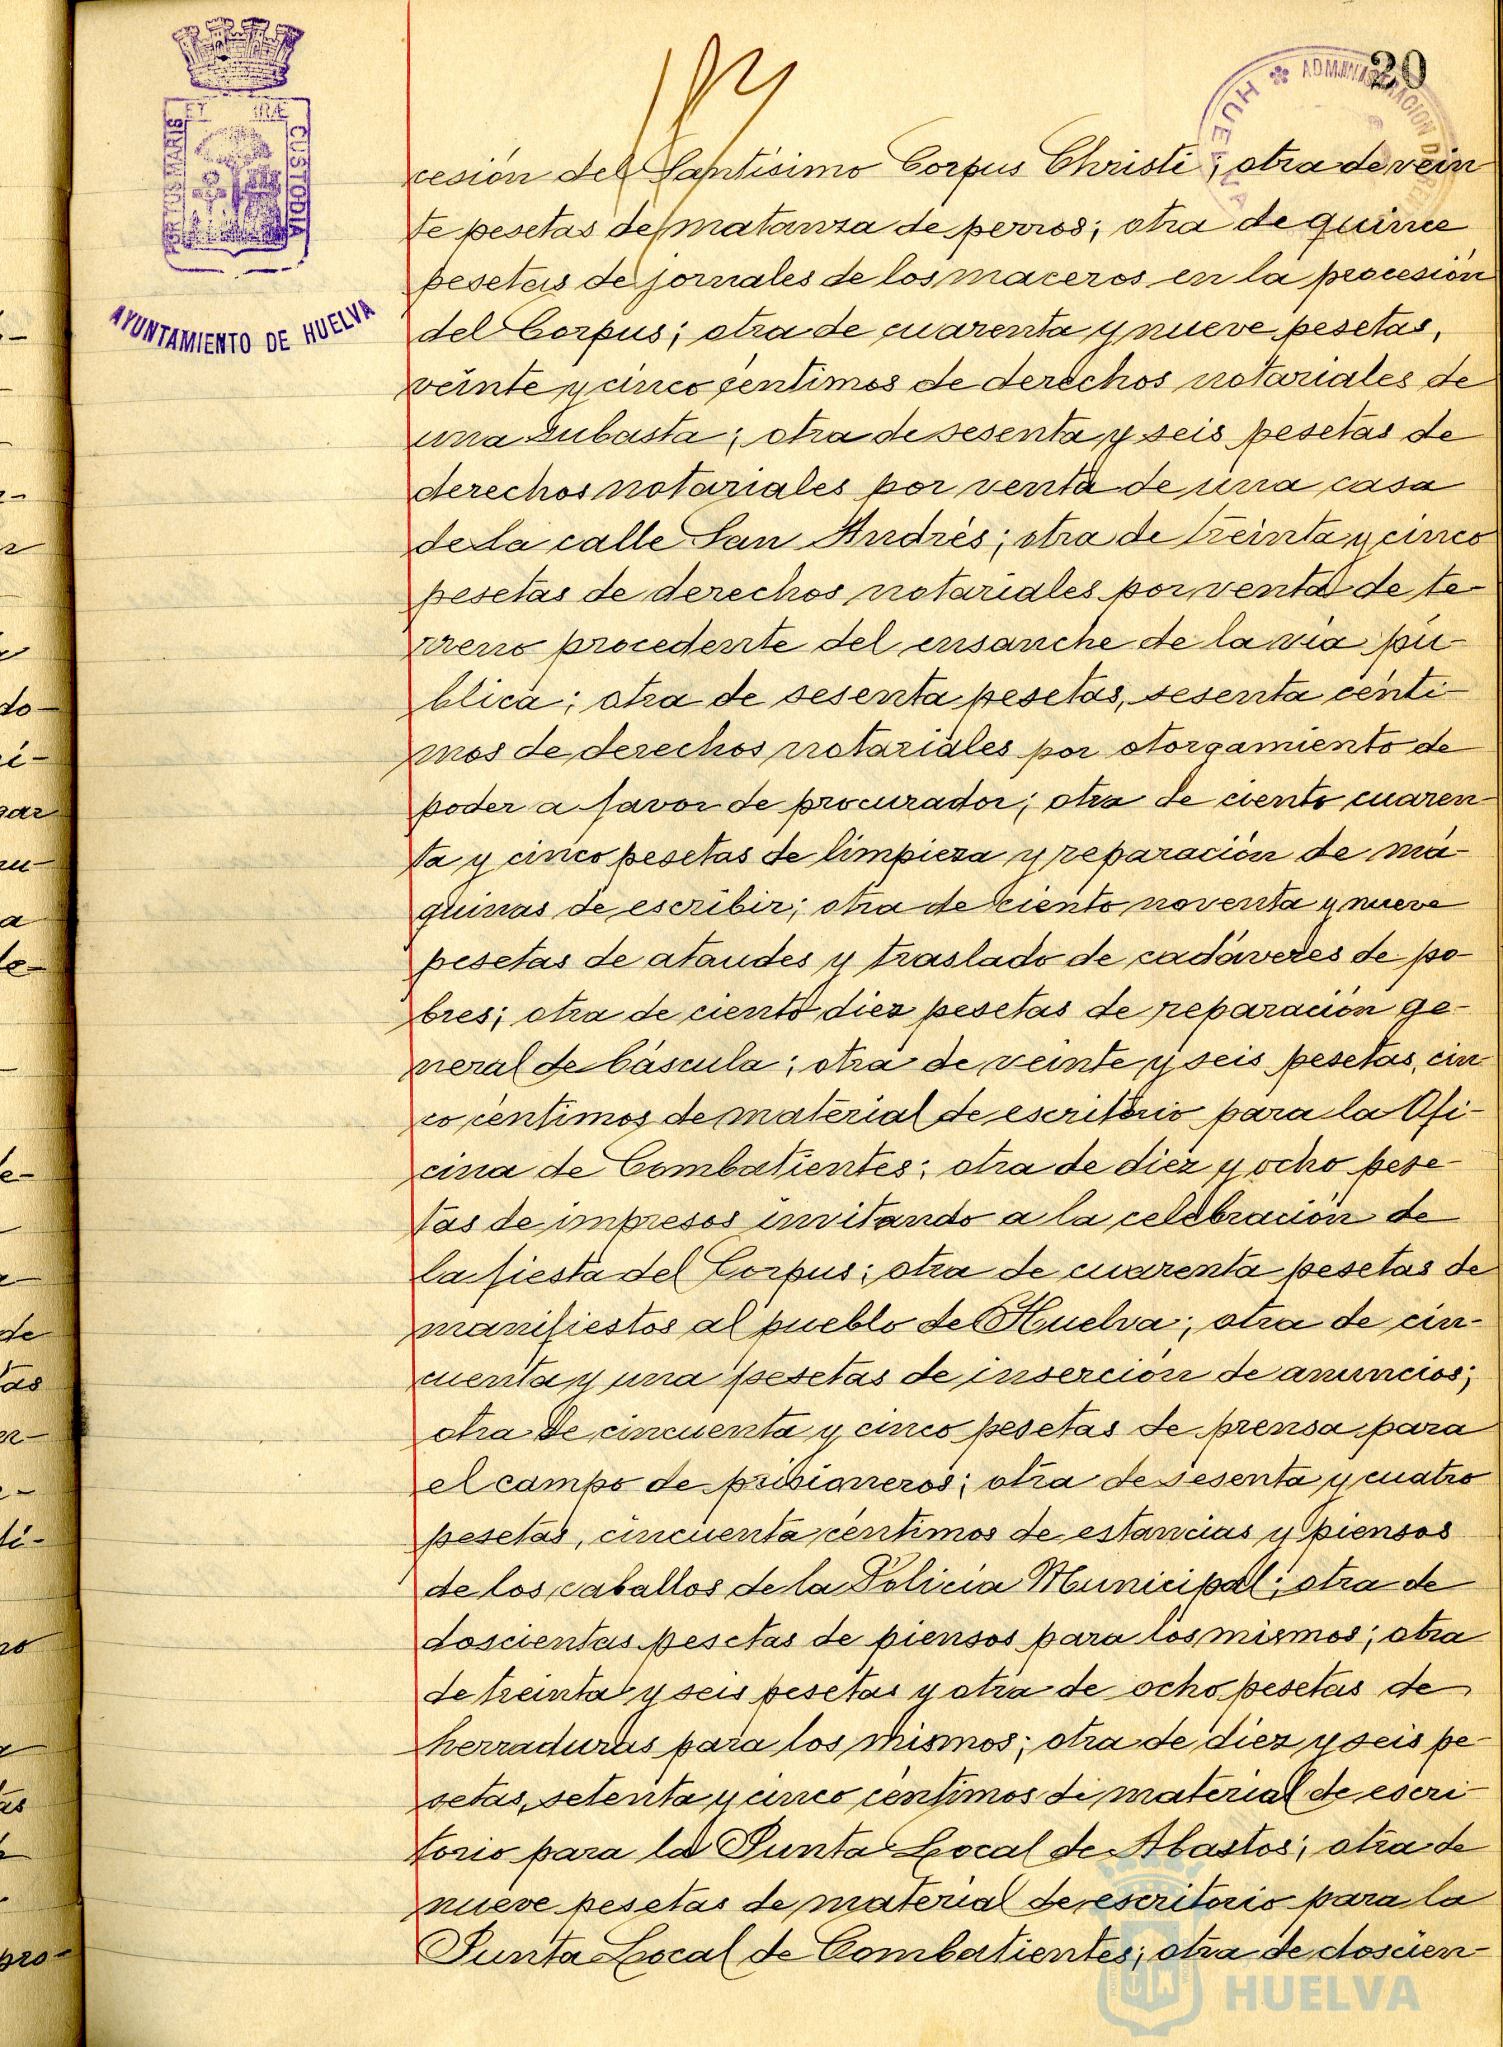 20
PORTUS MARIS ET TERRÆ CUSTODIA
AYUNTAMIENTO DE HUELVA
HUELVA
cesión del Santísimo Corpus Christi; otra de vein
te pesetas de matanza de perros; otra de quince
pesetas de jornales de los maceros en la procesión
del Corpus; otra de cuarenta y nueve pesetas,
veinte y cinco céntimos de derechos notariales de
una subasta; otra de sesenta y seis pesetas de
derechos notariales por venta de una casa
de la calle San Andrés; otra de treinta y cinco
pesetas de derechos notariales por venta de te-
rreno procedente del ensanche de la vía pú-
blica; otra de sesenta pesetas, sesenta cénti-
mos de derechos notariales por otorgamiento de
poder a favor de procurador; otra de ciento cuaren-
ta y cinco pesetas de limpieza y reparación de má-
quinas de escribir; otra de ciento noventa y nueve
pesetas de ataudes y traslado de cadáveres de po-
bres; otra de ciento diez pesetas de reparación ge-
neral de báscula; otra de veinte y seis pesetas, cin
co céntimos de material de escritorio para la Ofi-
cina de Combatientes; otra de diez y ocho pese-
tas de impresos invitando a la celebración de
la fiesta del Corpus; otra de cuarenta pesetas de
manifiestos al pueblo de Huelva; otra de cin-
cuenta y una pesetas de inserción de anuncios;
otra de cincuenta y cinco pesetas de prensa para
el campo de prisioneros; otra de sesenta y cuatro
pesetas, cincuenta céntimos de estancias y piensos
de los caballos de la Policía Municipal; otra de
doscientas pesetas de piensos para los mismos; otra
de treinta y seis pesetas y otra de ocho pesetas de
herraduras para los mismos; otra de diez y seis pe-
setas, setenta y cinco céntimos de material de escri-
torio para la Junta Local de Abastos; otra de
nueve pesetas de material de escritorio para la
Junta Local de Combatientes; otra de doscien-
HUELVA